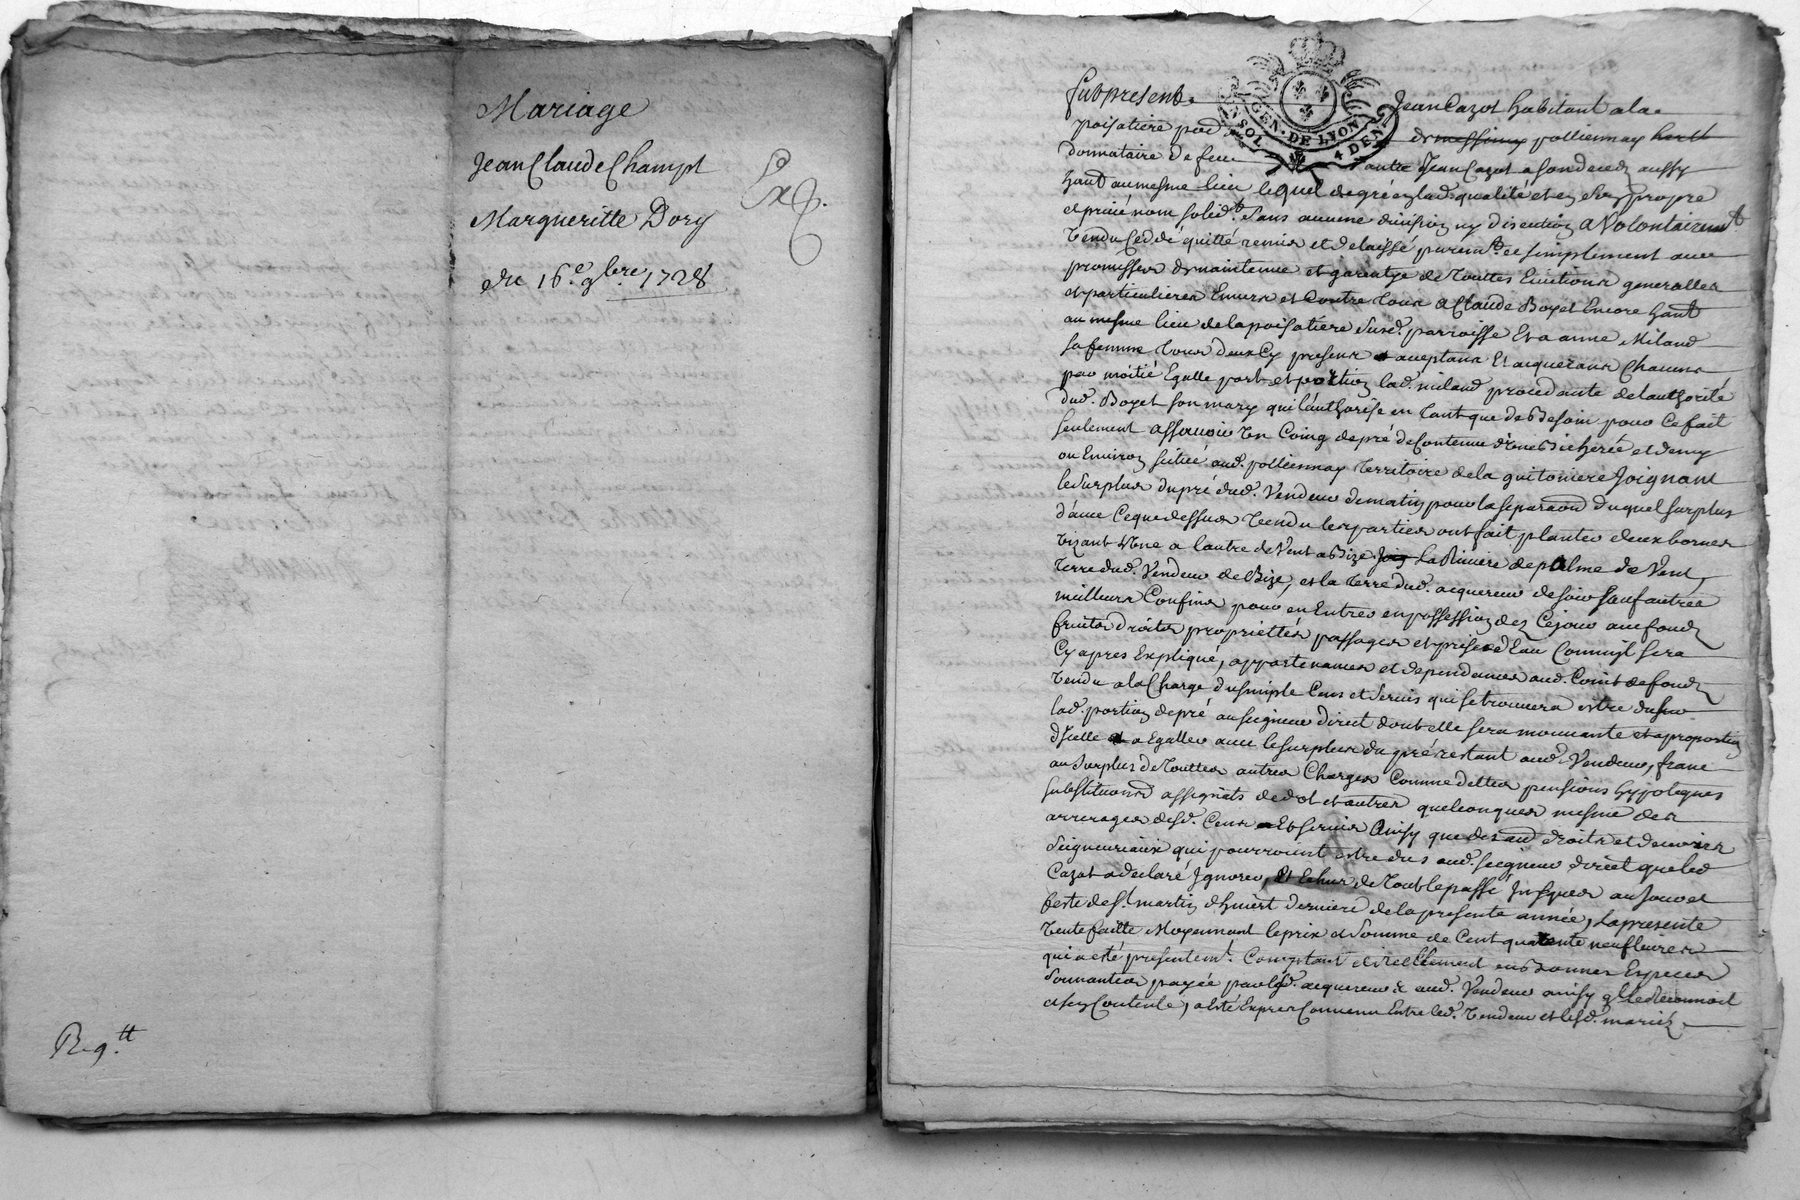 Mariage
Jean Claude Champt
Margueritte Dory
du 16.e 9.bre 1728
Exp.
Reg.tt
GEN. DE LYON
SOL 4 DEN
fut present Jean Cazot habitant a la
poisatiere par de messimy polliennay
donnataire de feu autre Jean Cazot aussy
hant au mesme lieu lequel de gré en lad. qualité et en son propre
et privé nom solid.t sans aucune division ny discution a Volontairem.t
Vendu Ceddé quitté remis et delaissé purem.t et simplement avec
promesses de maintenue et garentye de Touttes Evictions generalles
et particulieres Envers et Contre tous a Claude Boyet Encore hant
au mesme lieu de la poisatiere susd. parroisse Et a anne Miland
sa femme tous deux Cy presens et aceptans Et acquerans Chacuns
par moitié Egalle part et portion lad. miland procedante de l'authorité
dud. Boyet son mary qui l'authorise en tant que de Besoin pour Ce fait
seulement assavoir Un Coing de pré de Contenue d'Une Bicherée et demy
ou Environ scitué aud. polliennay Territoire de la guitoniere Joignant
le surplus du pré dud. Vendeur de matin pour la separaon duquel surplus
d'avec Ce que dessus Vendu les parties ont fait planter deux bornes
Vizant l'Une a l'autre de Vent a Bize, La Riviere de palme de Vent,
Terre dud. Vendeur de Bize, et la terre dud. acquereur de soir sauf autres
meilleurs Confins pour en Entrer en possession dez Ce jour avec fondz
fruits droits proprietés passages et prise d'Eau Comme Il sera
Cy apres Expliqué, appartenances et dependances aud. Coin de fondz
Vendu a la Charge du simple Cens et servis qui se trouvera estre du sur
lad. portion de pré au seigneur direct dont elle sera mouvante et a proportion
d'Icelle a Egaller avec le surplus du pré restant aud. Vendeur, franc
au surplus de Touttes autres Charges Comme dettes pensions hypoteques
substitutions assignats de dot et autres quelconques mesme des
arrerages desd. Cens Et servis Ainsy que des droits et devoirs
Seigneuriaux qui pourroient estre dus aud. seigneur direct que led.
Cazot a declaré Ignorer, de Tout le passé Jusques au jour et
feste de S.t martin d'hivert derniere de la presente année, La presente
Vente faitte Moyennant le prix et Somme de Cent quarente neuf livres
qui a eté presentem.t Comptant et reellement en Bonnes Especes
sonnantes payée par led. acquereur aud. Vendeur ainsy qu'Il le reconnoit
et s'en Contente, a eté Exprès Convenu Entre led. Vendeur et lesd. mariés